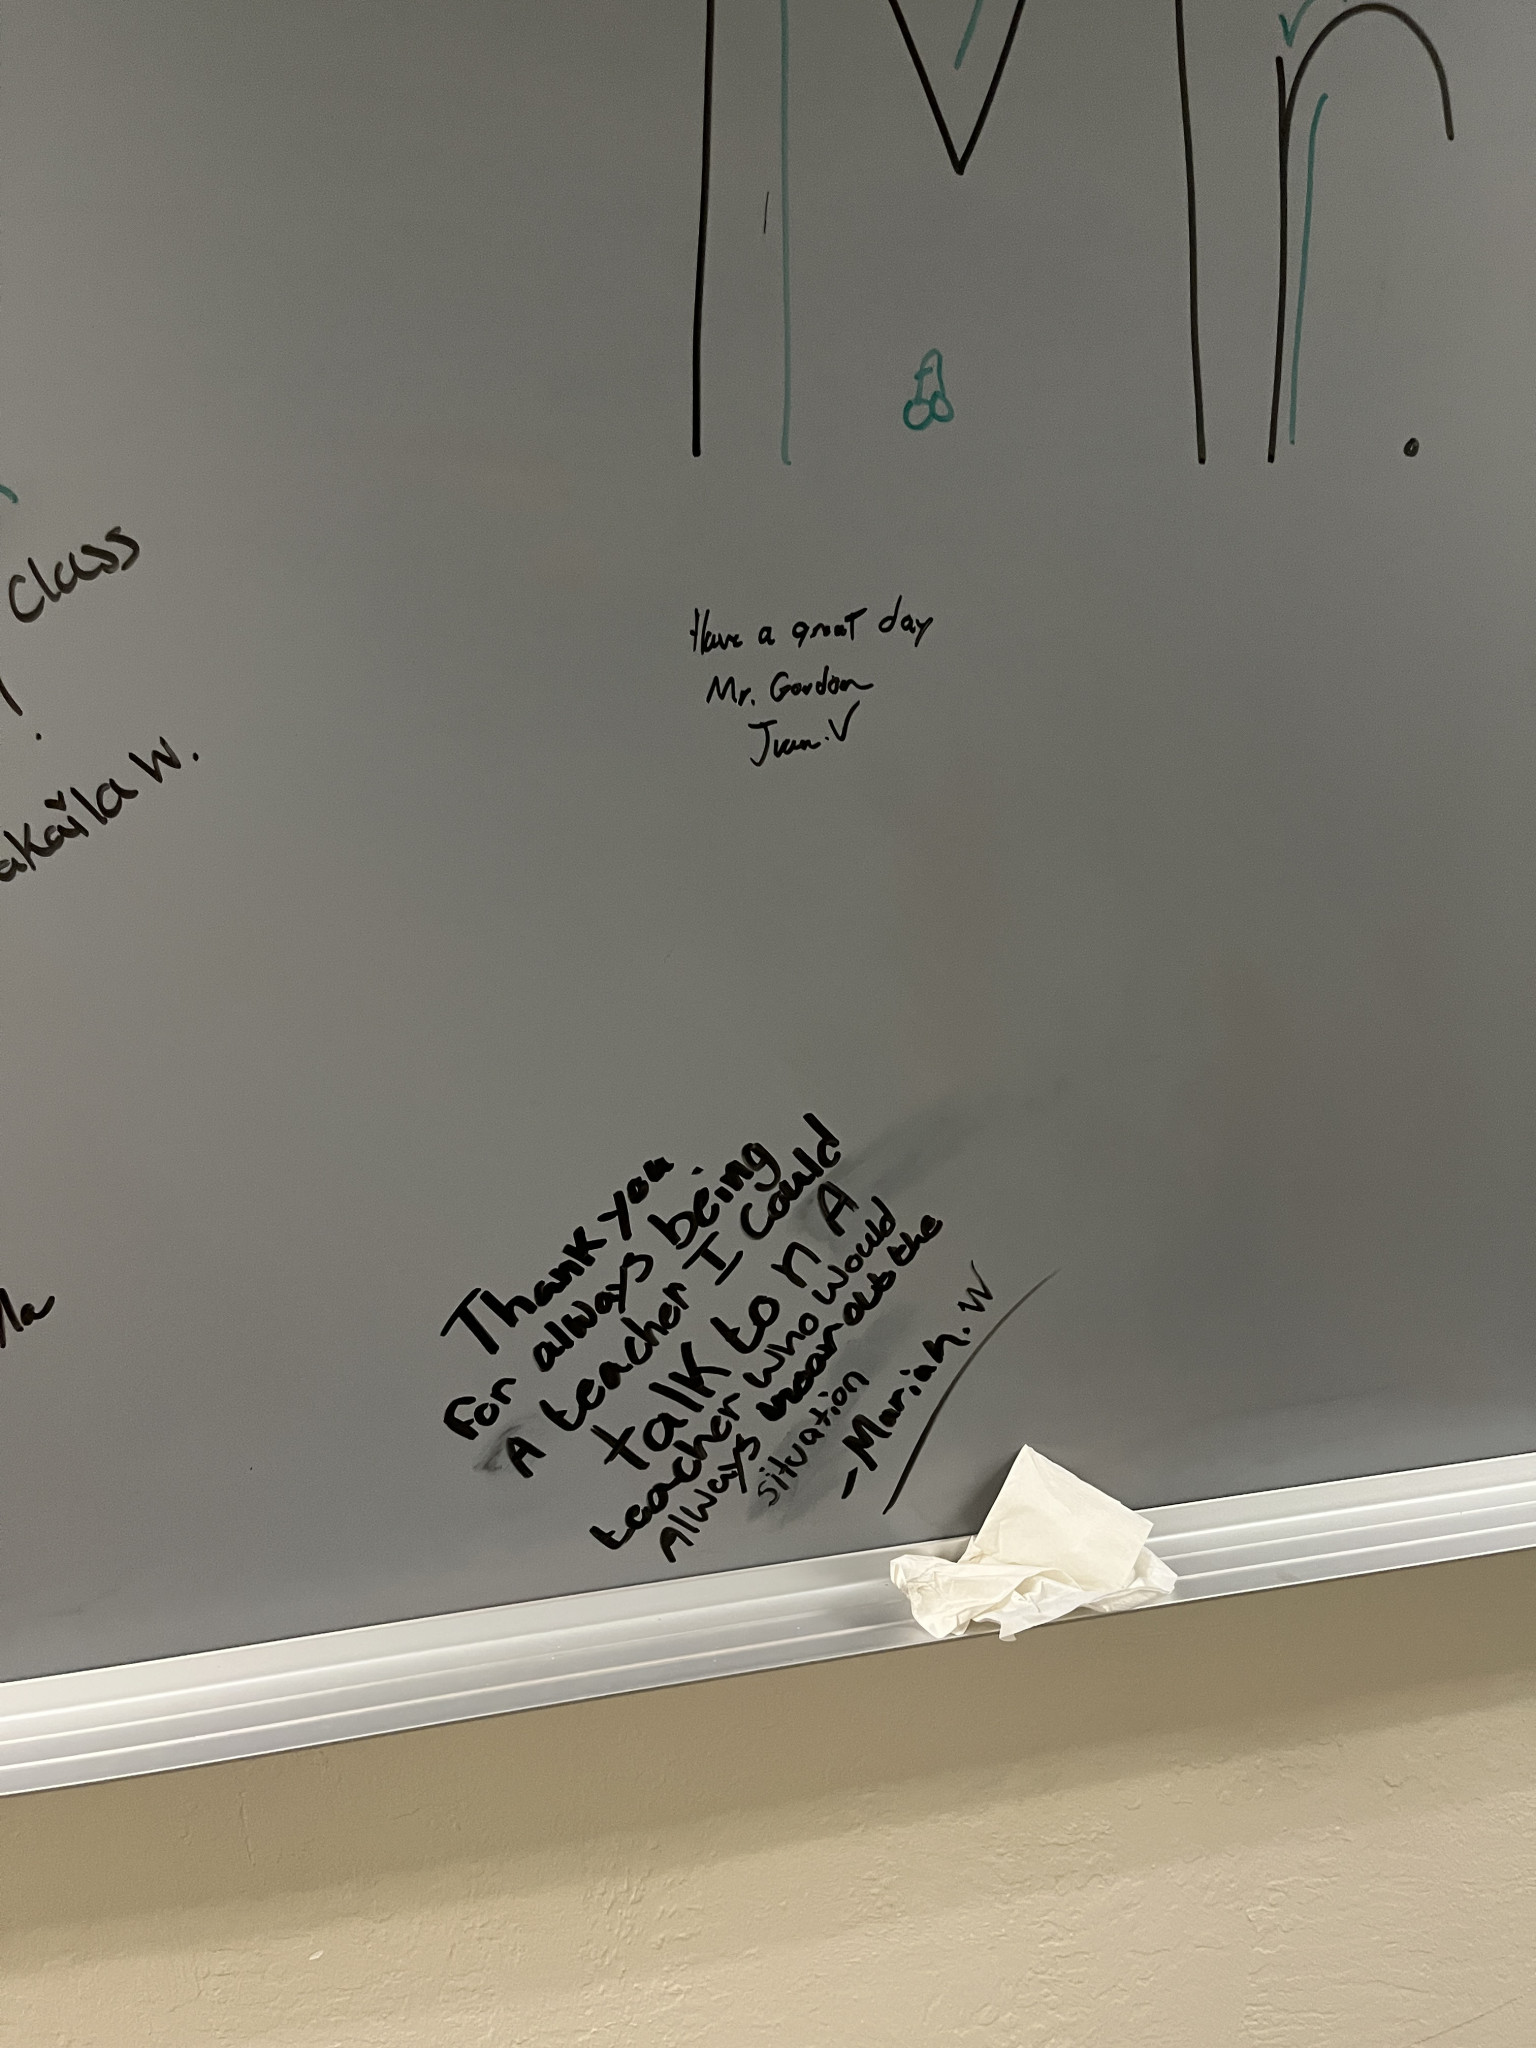 Mr.
Class
akaila W.
Have a great day
Mr. Gordon
Juan.V
la
Thank you
For always being
A teacher I could
talk to n A
teacher who would
Always hear out the
situation
-Mariah.W